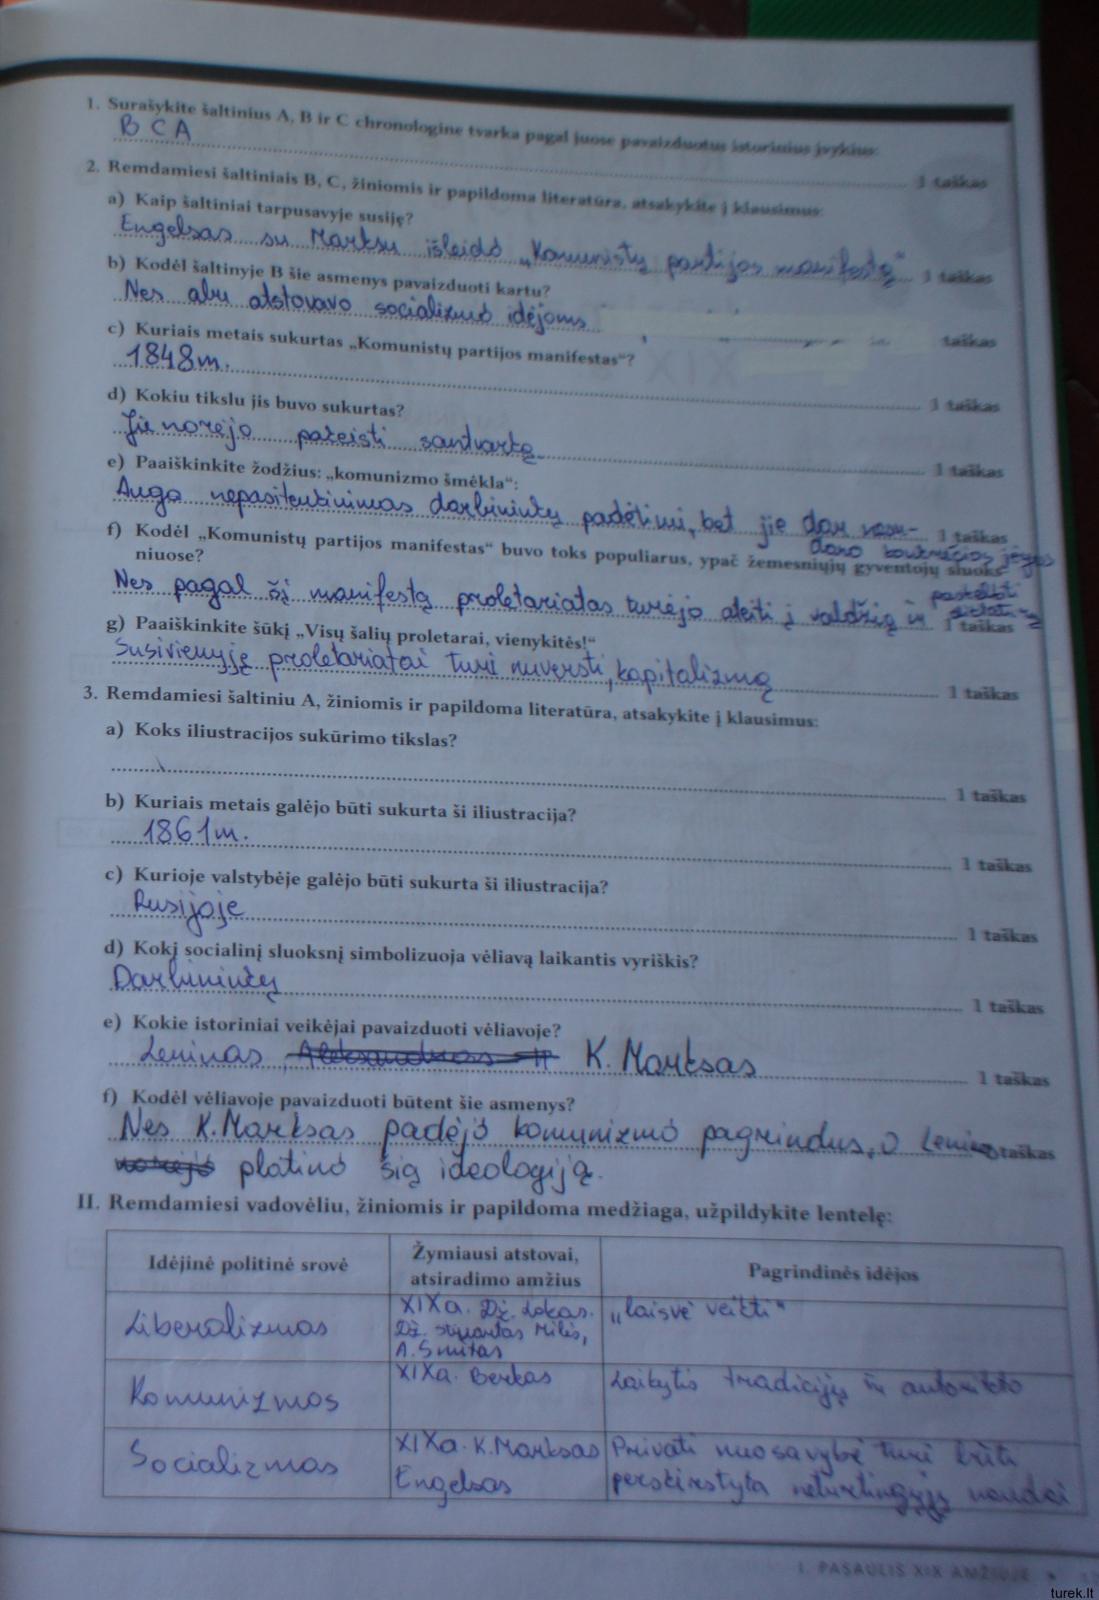 1. Surašykite šaltinius A, B ir C chronologine tvarka pagal juose pavaizduotus istorinius įvykius:
B C A
1 taškas
2. Remdamiesi šaltiniais B, C, žiniomis ir papildoma literatūra, atsakykite į klausimus:
a) Kaip šaltiniai tarpusavyje susiję?
Engelsas su Marksu išleido „Komunistų partijos manifestą“ 1 taškas
b) Kodėl šaltinyje B šie asmenys pavaizduoti kartu?
Nes abu atstovavo socializmo idėjoms
taškas
c) Kuriais metais sukurtas „Komunistų partijos manifestas“?
1848m.
1 taškas
d) Kokiu tikslu jis buvo sukurtas?
Jie norėjo pateisti santvarką
1 taškas
e) Paaiškinkite žodžius: „komunizmo šmėkla“:
Augo nepasitenkinimas darbininkų padėtimi, bet jie dar 1 taškas
f) Kodėl „Komunistų partijos manifestas“ buvo toks populiarus, ypač žemesniųjų gyventojų sluoks-
niuose?
Nes pagal šį manifestą proletariatas turėjo ateiti į valdžią ir 1 taškas
g) Paaiškinkite šūkį „Visų šalių proletarai, vienykitės!“
Susivieniję proletariatai turi nuversti kapitalizmą
1 taškas
3. Remdamiesi šaltiniu A, žiniomis ir papildoma literatūra, atsakykite į klausimus:
a) Koks iliustracijos sukūrimo tikslas?
1 taškas
b) Kuriais metais galėjo būti sukurta ši iliustracija?
1861m.
1 taškas
c) Kurioje valstybėje galėjo būti sukurta ši iliustracija?
Rusijoje
1 taškas
d) Kokį socialinį sluoksnį simbolizuoja vėliavą laikantis vyriškis?
Darbininkų
1 taškas
e) Kokie istoriniai veikėjai pavaizduoti vėliavoje?
Leninas, Aleksandras II K. Marksas
1 taškas
f) Kodėl vėliavoje pavaizduoti būtent šie asmenys?
Nes K. Marksas padėjo komunizmo pagrindus, o Leninas taškas
norėjo platino šią ideologiją.
II. Remdamiesi vadovėliu, žiniomis ir papildoma medžiaga, užpildykite lentelę:
Idėjinė politinė srovė
Žymiausi atstovai,
atsiradimo amžius
Pagrindinės idėjos
Liberalizmas
XIXa. Dž. Lokas.
Dž. Stiuartas Milis,
A. Smitas
„laisvė veikti“
Komunizmas
XIXa. Berkas
Laikytis tradicijų ir autoriteto
Socializmas
XIXa. K. Marksas
Engelsas
Privati nuosavybė turi būti
perskirstyta neturtingųjų naudai
I. PASAULIS XIX AMŽIUJE •
turek.lt